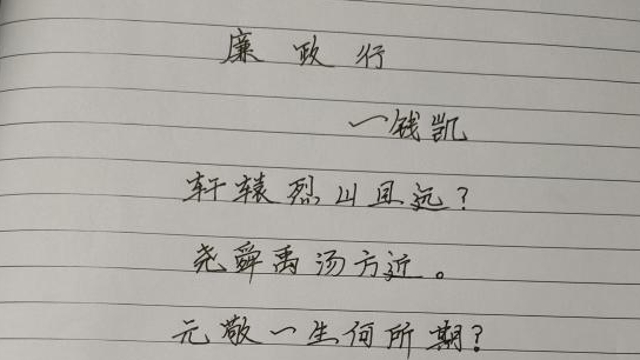 廉政行
一钱凯
轩辕烈山且远?
尧舜禹汤方近。
元敬一生何所期?